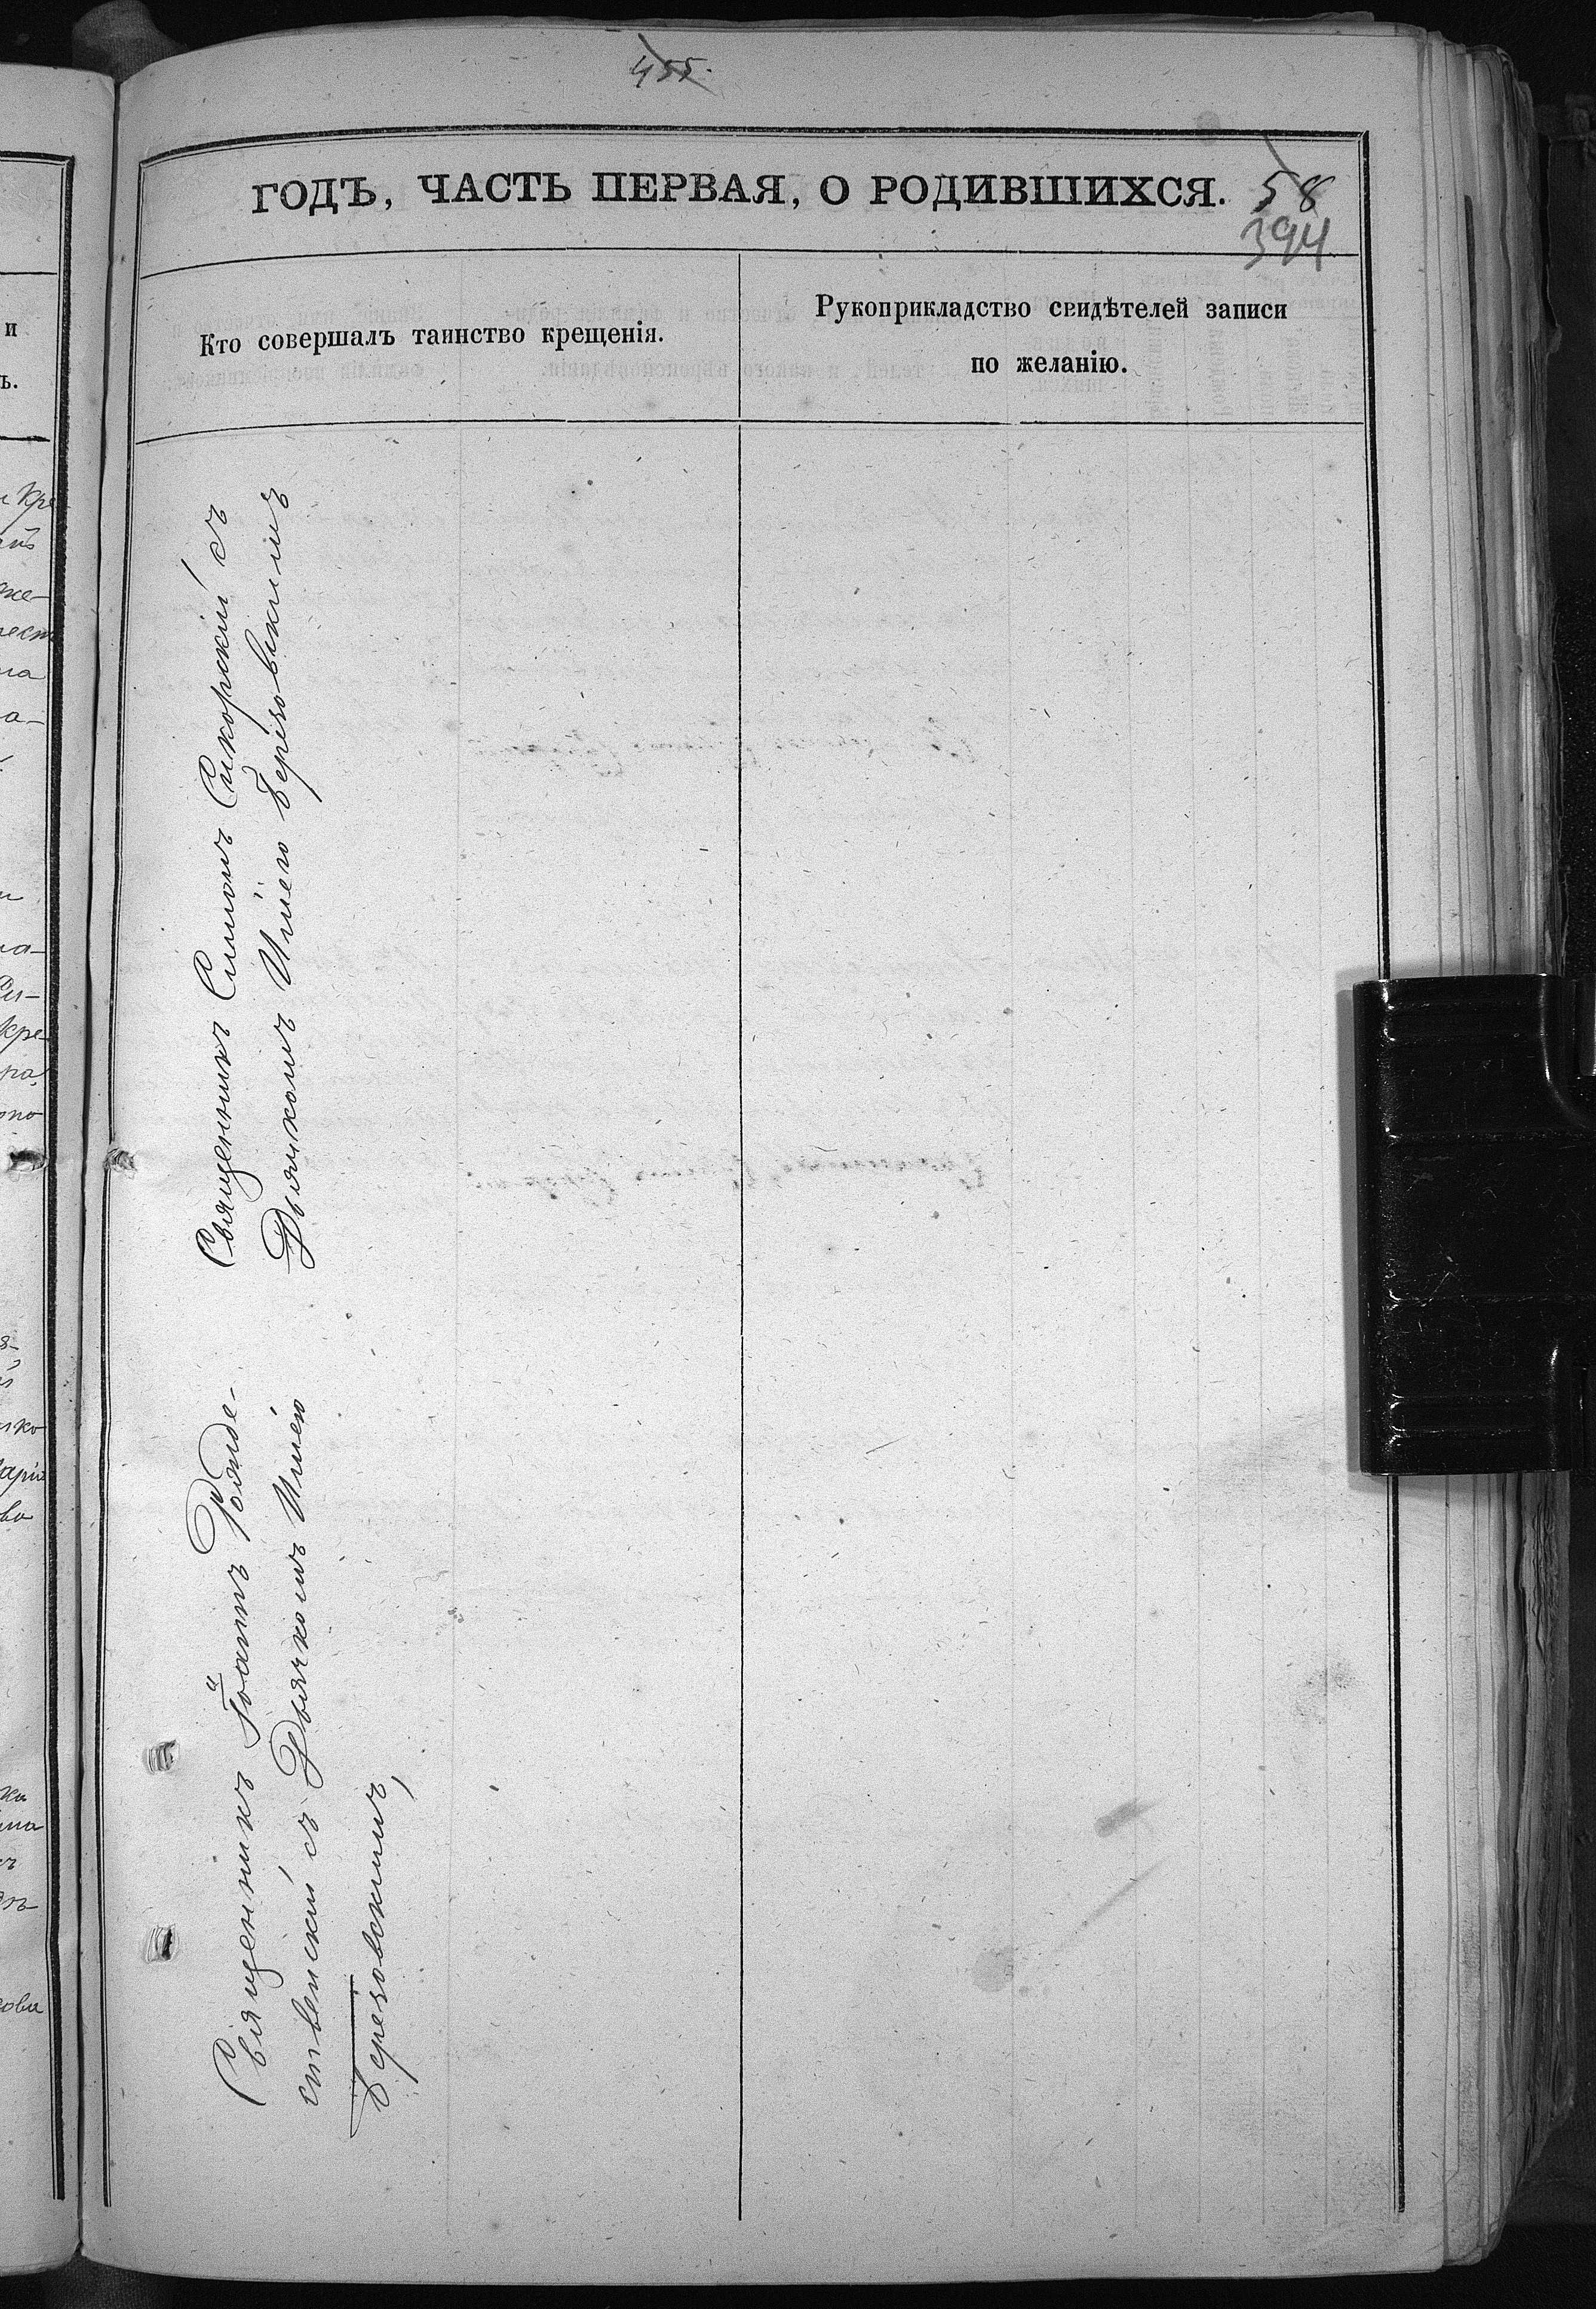 455.
ГОДЪ, ЧАСТЬ ПЕРВАЯ, О РОДИВШИХСЯ. 58
394
Кто совершалъ таинство крещенія.
Рукоприкладство свидѣтелей записи
по желанію.
Священникъ Симонъ Сикорскій съ
Дьячкомъ Иліею Березовскимъ
Священникъ Іоаннъ Рожде-
ственскій съ Дьячкомъ Иліею
Березовскимъ,